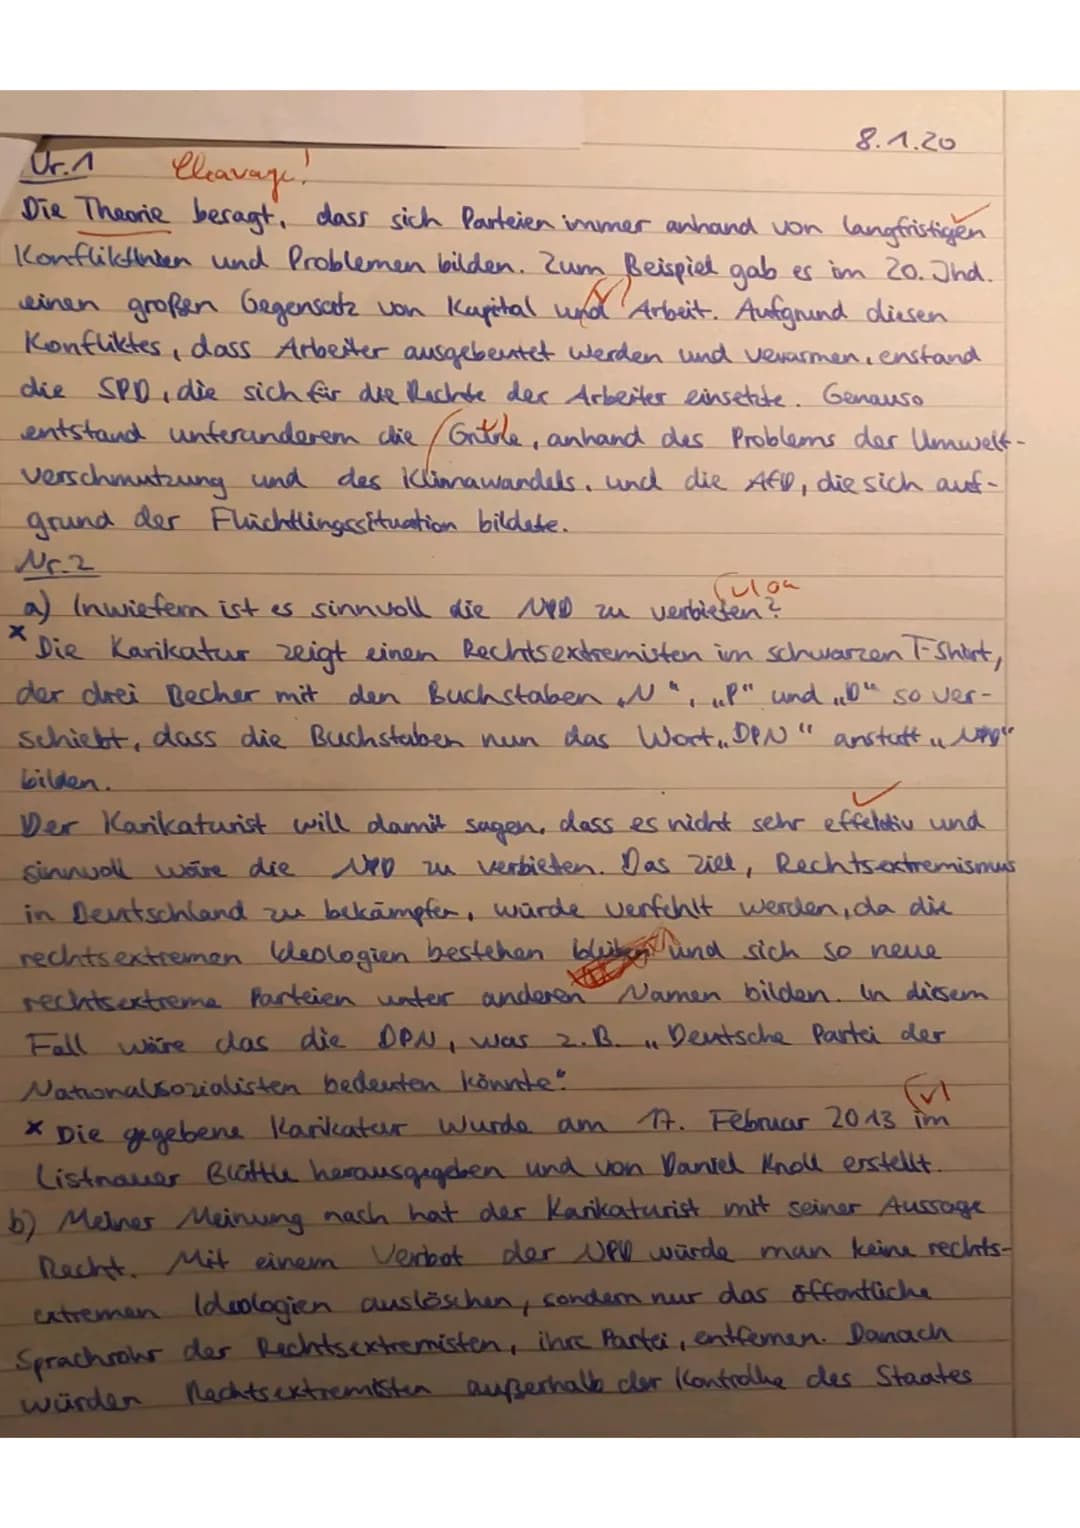 8.1.20
Nr.1 Cleavage!
Die Theorie besagt, dass sich Parteien immer anhand von langfristigen
Konfliktlinien und Problemen bilden. Zum Beispiel gab es im 20. Jhd.
einen großen Gegensatz von Kapital und Arbeit. Aufgrund diesen
Konfliktes, dass Arbeiter ausgebeutet werden und verarmen, enstand
die SPD, die sich für die Rechte der Arbeiter einsetzte. Genauso
entstand unteranderem die Grüne, anhand des Problems der Umwelt-
verschmutzung und des Klimawandels, und die AfD, die sich auf-
grund der Flüchtlingssituation bildete.
Nr.2
a) Inwiefern ist es sinnvoll die NPD zu verbieten?
x Die Karikatur zeigt einen Rechtsextremisten im schwarzen T-Shirt,
der drei Becher mit den Buchstaben „N", „P" und „D" so ver-
schiebt, dass die Buchstaben nun das Wort „DPN" anstatt „NPD"
bilden.
Der Karikaturist will damit sagen, dass es nicht sehr effektiv und
sinnvoll wäre die NPD zu verbieten. Das Ziel, Rechtsextremismus
in Deutschland zu bekämpfen, würde verfehlt werden, da die
rechtsextremen Ideologien bestehen bleiben und sich so neue
rechtsextreme Parteien unter anderen Namen bilden. In diesem
Fall wäre das die DPN, was z.B. „Deutsche Partei der
Nationalsozialisten bedeuten könnte"
x Die gegebene Karikatur wurde am 17. Februar 2013 im
Listnauer Blättle herausgegeben und von Daniel Knoll erstellt.
b) Meiner Meinung nach hat der Karikaturist mit seiner Aussage
Recht. Mit einem Verbot der NPD würde man keine rechts-
extremen Ideologien auslöschen, sondern nur das öffentliche
Sprachrohr der Rechtsextremisten, ihre Partei, entfernen. Danach
würden Rechtsextremisten außerhalb der Kontrolle des Staates